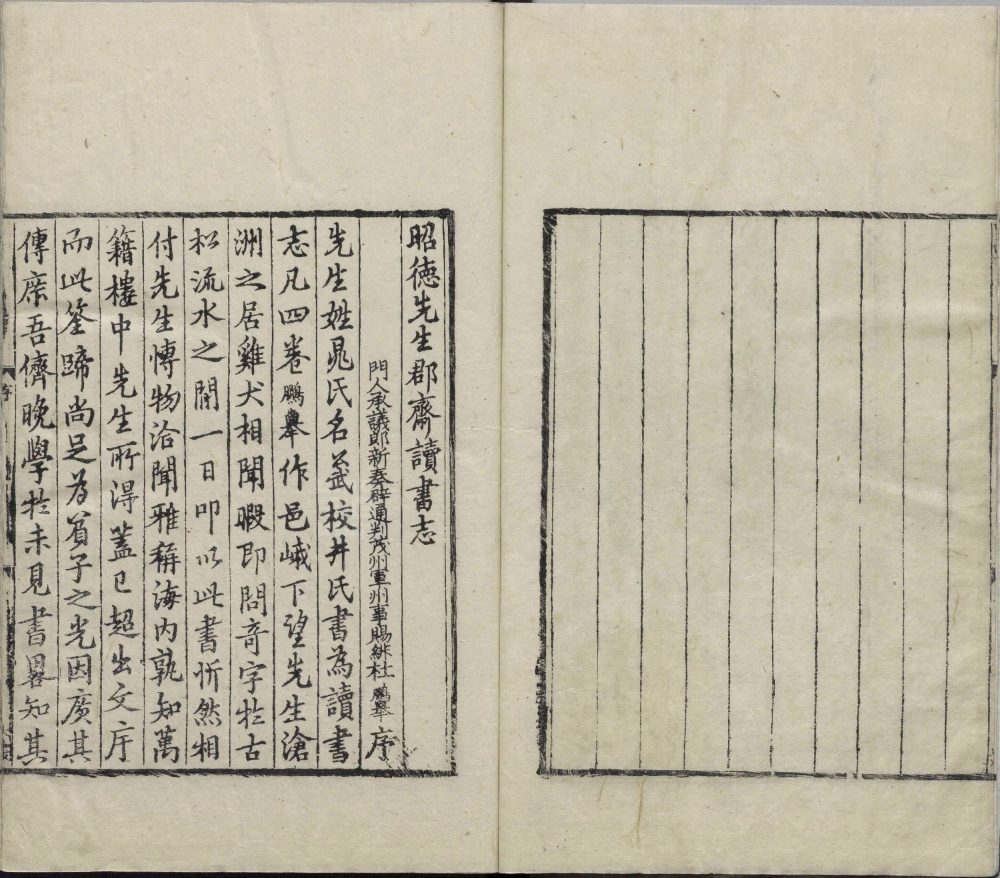 昭德先生郡齋讀書志
門人承議郎新奏辟通判茂州軍州事賜緋杜鵬舉序
先生姓晁氏名公武校井氏書為讀書
志凡四卷鵬舉作邑峨下望先生滄
洲之居雞犬相聞暇即問奇字扵古
松流水之間一日叩以此書忻然相
付先生愽物洽聞雅稱海内孰知萬
籍樓中先生所得蓋已超出文字
而此筌蹄尚足為貧子之光因廣其
傳庶吾儕晚學扵未見書畧知其
序